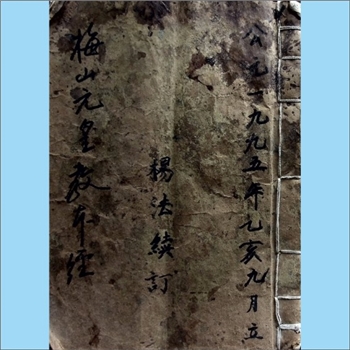 公元一九九五年乙亥九月立
楊法續訂
梅山元皇教本經